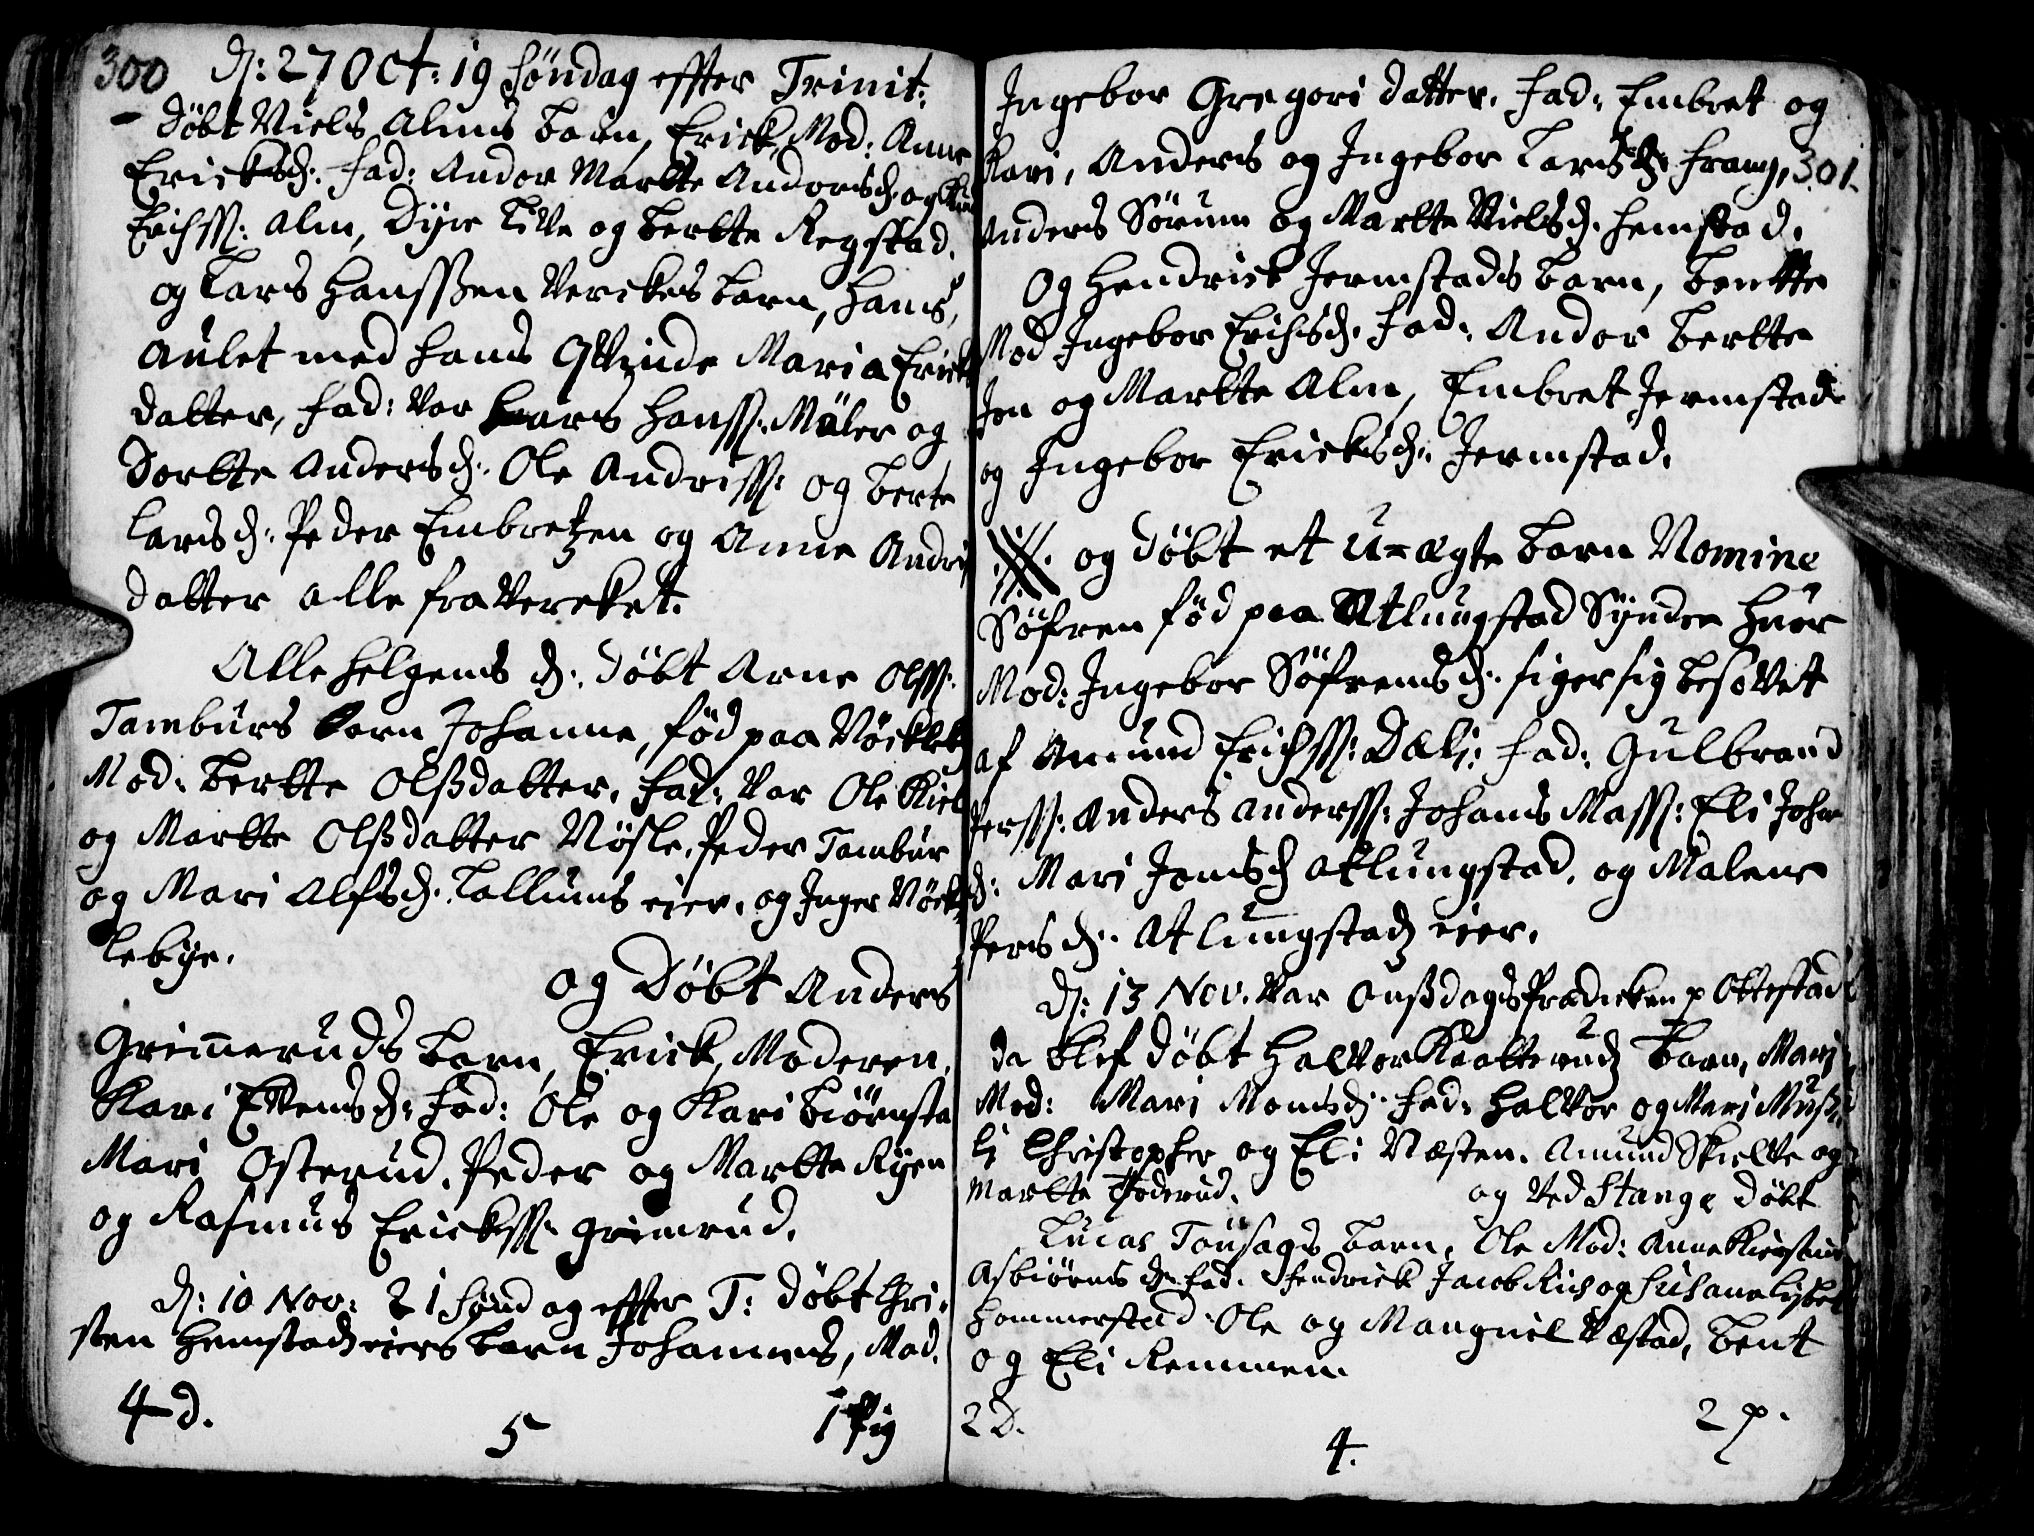 300
D: 27 Oct: 19 Søndag effter Trinit:
Døbt Niels Alms barn, Erick, Mod: Anne
Ericksd: fad: Andor Marthe Andorsd: og
Erichss: Alm, Dyre Lille og Berthe Regstad.
og Lars Hanssøn Verckes barn, Hans,
Aulet med hans Qvinde Maria Erick
datter, fad: var Lars Hanss: Müler og
Dorthe Andersd: Ole Andriss: og Berte
Larsd: Peder Embretzen og Anne Andri
datter alle fra Vercket.
Alle Helgens D: døbt Arne Olss:
Tamburs barn Johanne, fød paa Nöckleb
Mod: Berthe Olßdatter, fad: var Ole Kiel
og Marthe Olßdatter Nøsle, Peder Tambur
og Mari Alfsd: Tallums eier, og Inger Nöck
lebye.
og Døbt Anders
Grim̅eruds barn, Erick, Moderen,
Kari Evensd: fad: Ole og Kari Biørnsta
Mari Osterud, Peder og Marthe Ryen
og Rasmus Ericks: Grimrud.
D: 10 Nov: 21 Søndag effter T: døbt Chri-
sten Hemstad eiers barn Johannes, Mod.
4 d.
5
1 Pig
Ingebor Gregori datter, fad: Embret og
Kari, Anders og Ingebor Larsd: Frang,
301.
Anders Sørum og Marthe Nielsd: Hemstad.
Og Hendrick Jermstads barn, Benthe
Mod Ingebor Erichsd: fad: Andor Berthe
Jen og Marthe Alm, Embret Jermstad
og Ingebor Ericksd: Jermstad.
og døbt et U=ægte barn Nomine
Søfren fød paa Atlungstad Syndre huor
Mod: Ingebor Søfrensd: siger sig besovet
af Amund Erichss: Dæli: fad: Gulbrand
Perss: Anders Anderss: Johans Mass: Eli Johan
d: Mari Jonsd Atlungstad, og Malene
Persd: Atlungstad eier.
D: 13 Nov. var Onßdags Prædicken p Ottestad
da blef døbt Halvor Kaatterud barn, Mari
Mod: Mari Monsd: fad: Halvor og Mari Muß
li Christopher og Eli Næsten. Amund Skielve og
Marthe Foderud.
og ved Stange døbt
Lucas Tousags barn, Ole Mod: Anne Kierstine
Asbiørnsd: fad: Hendrick Jacob Riis og Susana Lysbet
Hommerstad. Ole og Mangnil Væstad, Bent
og Eli Remmen.
2 D.
4.
2 p.